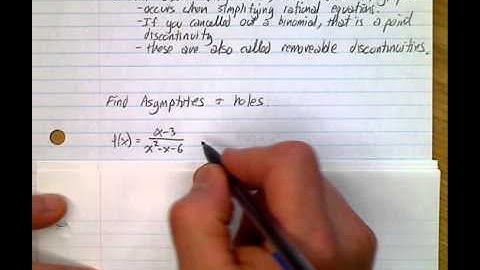 -occurs when simplifying rational equations.
-If you cancelled out a binomial, that is a point
discontinuity
- these are also called removeable discontinuities.
Find Asymptotes + holes.
f(x) = x-3 / x²-x-6